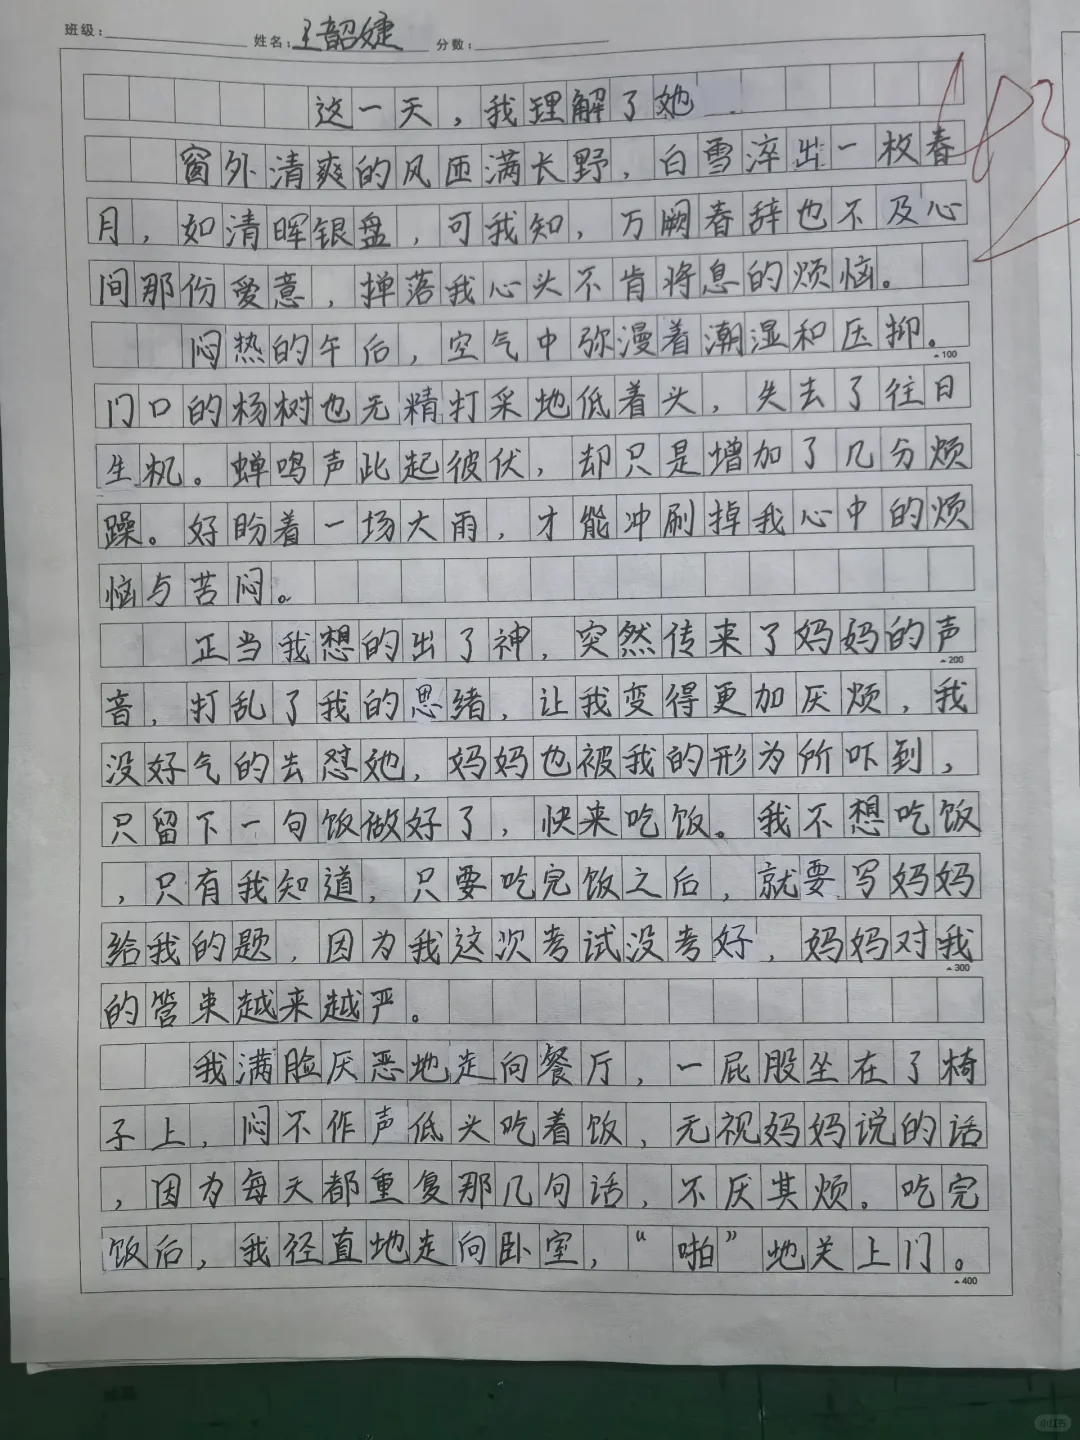 班级: 姓名:王韶婕 分数:
这一天,我理解了她
窗外清爽的风匝满长野,白雪淬出一枚春
月,如清晖银盘,可我知,万阙春辞也不及心
间那份爱意,掸落我心头不肯将息的烦恼。
闷热的午后,空气中弥漫着潮湿和压抑。
100
门口的杨树也无精打采地低着头,失去了往日
生机。蝉鸣声此起彼伏,却只是增加了几分烦
躁。好盼着一场大雨,才能冲刷掉我心中的烦
恼与苦闷。
正当我想的出了神,突然传来了妈妈的声
200
音,打乱了我的思绪,让我变得更加厌烦,我
没好气的去怼她,妈妈也被我的形为所吓到,
只留下一句饭做好了,快来吃饭。我不想吃饭
,只有我知道,只要吃完饭之后,就要写妈妈
给我的题,因为我这次考试没考好,妈妈对我
300
的管束越来越严。
我满脸厌恶地走向餐厅,一屁股坐在了椅
子上,闷不作声低头吃着饭,无视妈妈说的话
,因为每天都重复那几句话,不厌其烦。吃完
饭后,我径直地走向卧室,“啪”地关上门。
400
小红书